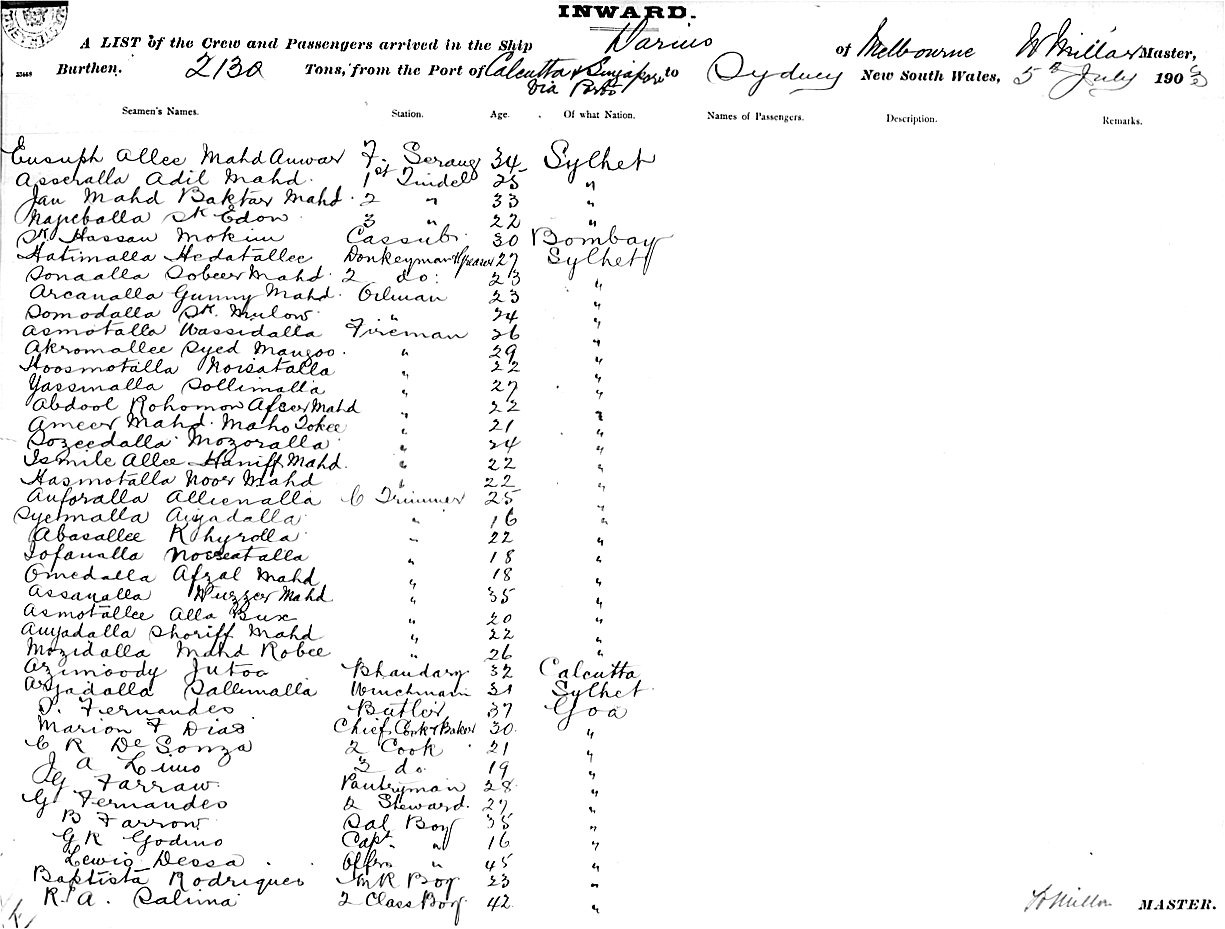 INWARD.
A LIST of the Crew and Passengers arrived in the Ship Darius of Melbourne W Millar Master,
23449 Burthen. 2130 Tons, from the Port of Calcutta & Singapore to Sydney New South Wales, 5th July 190
Via Ports
Seamen's Names. Station. Age. Of what Nation. Names of Passengers. Description. Remarks.
Eusuph Allee Mahd Anwar F. Serang 34 Sylhet
Asseralla Adil Mahd. 1st Tindell 25 "
Jan Mahd Baktar Mahd. 2 " 33 "
Najeballa Sk Edon 3 " 22 "
Sk Hassan Mokim Cassub. 30 Bombay
Hatimalla Hedatallee Donkeyman 27 Sylhet
Sonaalla Sobeer Mahd 2 do: 23
Arcanalla Gunny Mahd. Oilman 23 "
Somodalla Sk. Mulow " 24 "
Asmotalla Wassidalla Fireman 26 "
Akromallee Syed Mangoo. " 29 "
Hoosmotalla Noisatalla " 22 "
Yassinalla Sollimalla " 27 "
Abdool Rohomon Afser Mahd " 22 "
Ameer Mahd. Maho Tokee " 21 "
Sozeedalla Mozoralla " 24 "
Ismile Allee Haniff Mahd. " 22 "
Hasmotalla Noor Mahd " 22 "
Auforalla Allienalla C Trimmer 25 "
Syemalla Aijadalla " 16 "
Abasallee Khyrolla " 22 "
Iofanalla " 18 "
Omedalla Afzal Mahd " 18 "
Assanalla Wuzzer Mahd " 35 "
Asmotallee Alla Bux " 20 "
Auyadalla Shoriff Mahd " 22 "
Mozidalla Mahd Robee " 26 "
Azimoody Jutoo Bhandary 32 Calcutta
Asjadalla Sallimalla Winchman 31 Sylhet
Fernandes Butler 37 Goa
Marion F Dias Chief Cook & Baker 30 "
C R De Sonza 2 Cook 21 "
J A Limo 3 do. 19 "
G Farraw Pantryman 28 "
G Fernandes 2 Steward. 27 "
B Farrow Sal Boy 35 "
G R Godino Capt " 16 "
Lewis Dessa. Offrs " 45 "
Baptista Rodrigues M R Boy 23 "
R. A. Salima 2 Class Boy 42 "
MASTER.